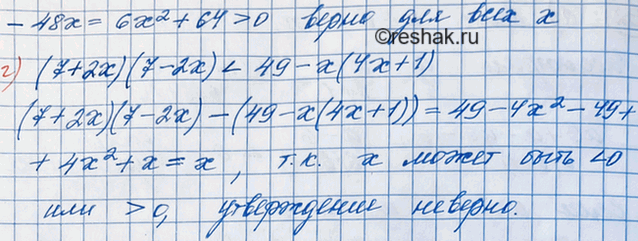 - 48x = 6x² + 64 > 0 верно для всех x
©reshak.ru
г) (7+2x)(7-2x) < 49 - x(4x+1)
(7+2x)(7-2x) - (49 - x(4x+1)) = 49 - 4x² - 49 +
+ 4x² + x = x, т.к. x может быть < 0
или > 0, утверждение неверно.